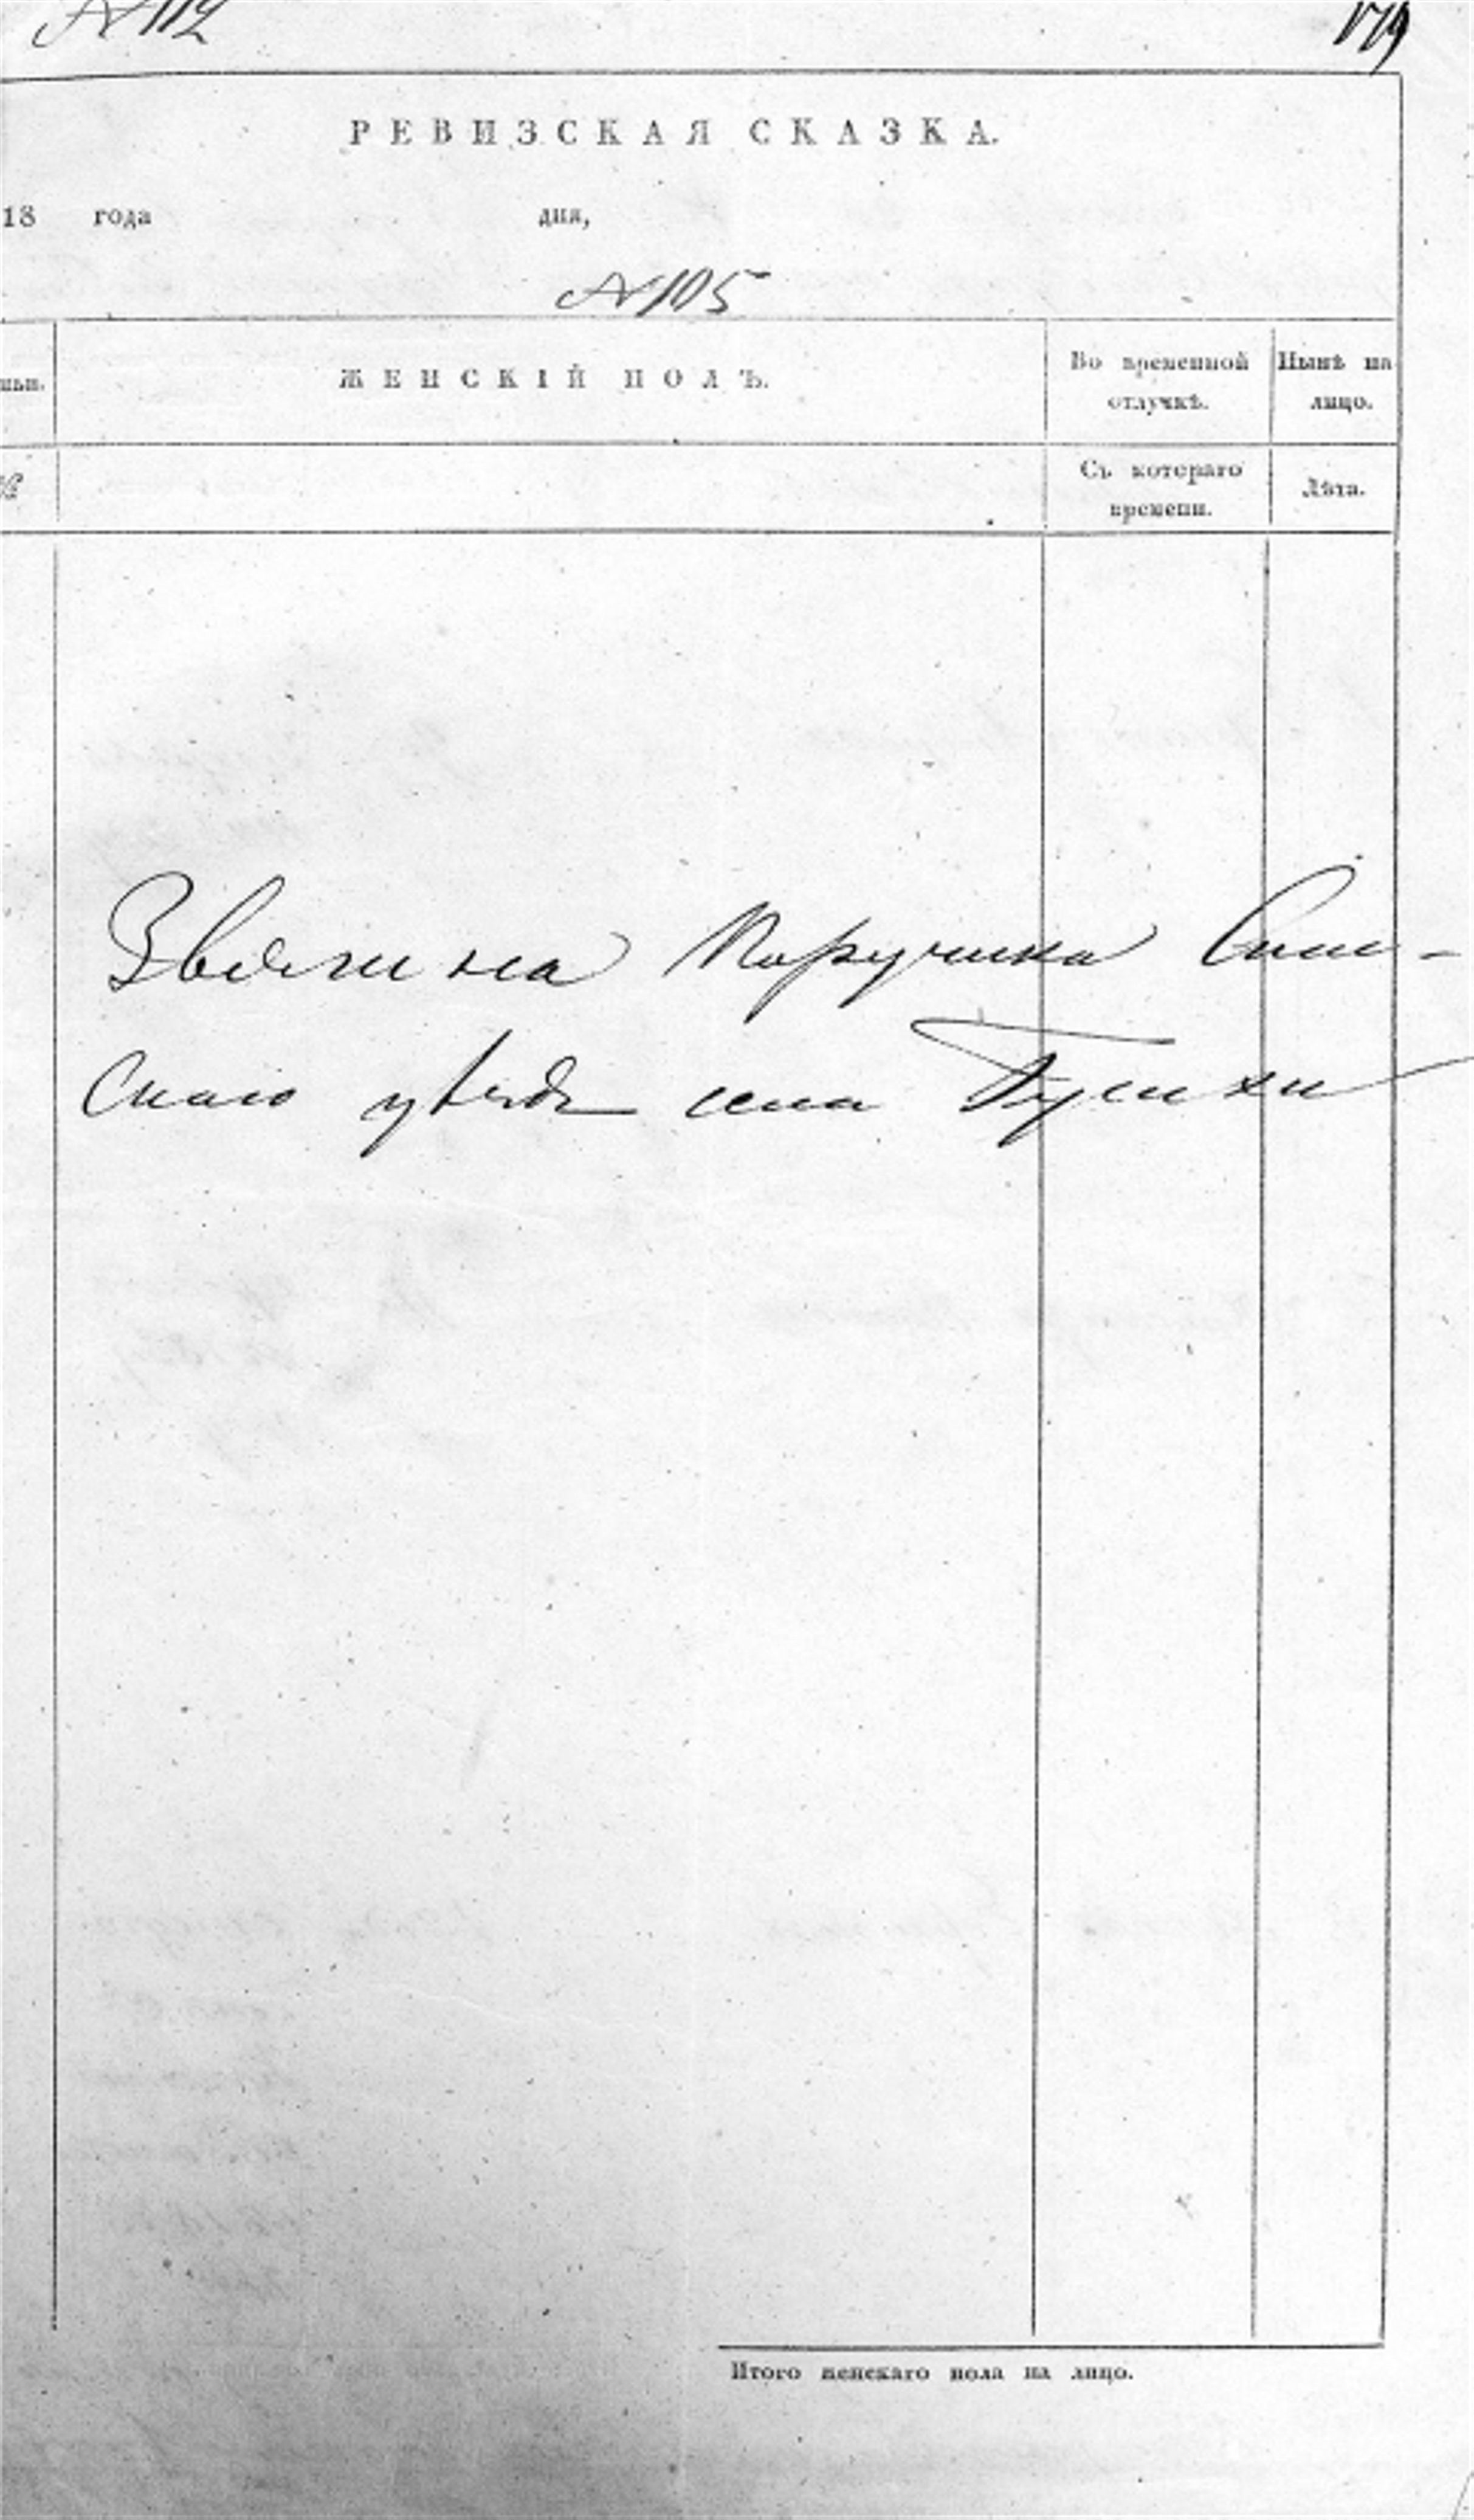 № 112 179
РЕВИЗСКАЯ СКАЗКА.
18 года дня,
№ 105
ЖЕНСКІЙ ПОЛЪ.
Во временной отлучкѣ.
Нынѣ на лицо.
№
Съ котораго времени.
Лѣта.
Звягина Поручика Спас-
скаго уѣзда села
Итого женскаго пола на лицо.